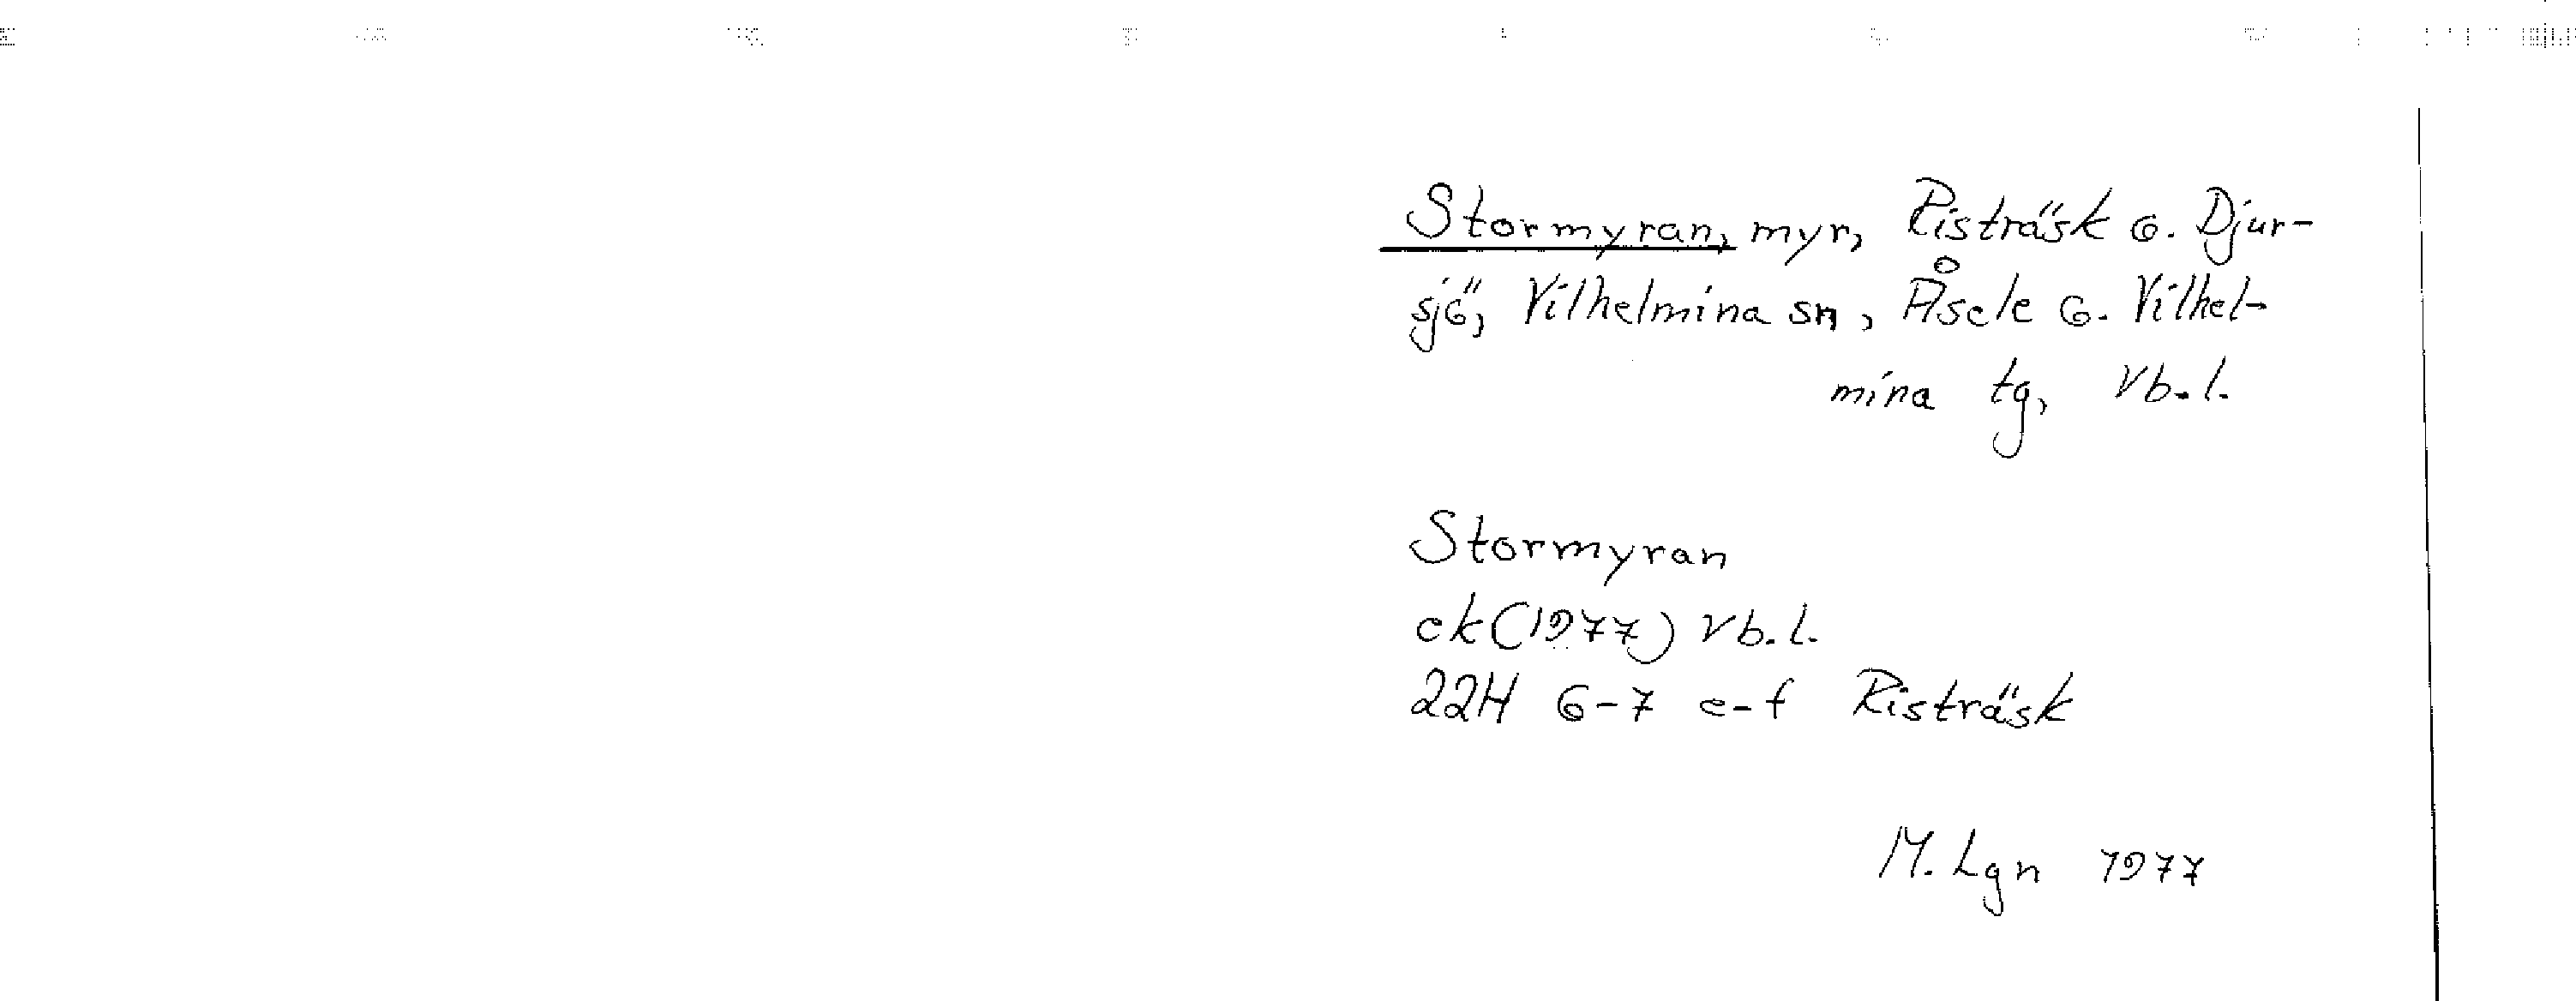 Stormyran, myr, Risträsk o. Djur-
sjö, Vilhelmina sn, Åsele o. Vilhel-
mina tg, Vb.l.
Stormyran
ek (1977) Vb.l.
22H 6-7 e-f Risträsk
M. Lgn 1977